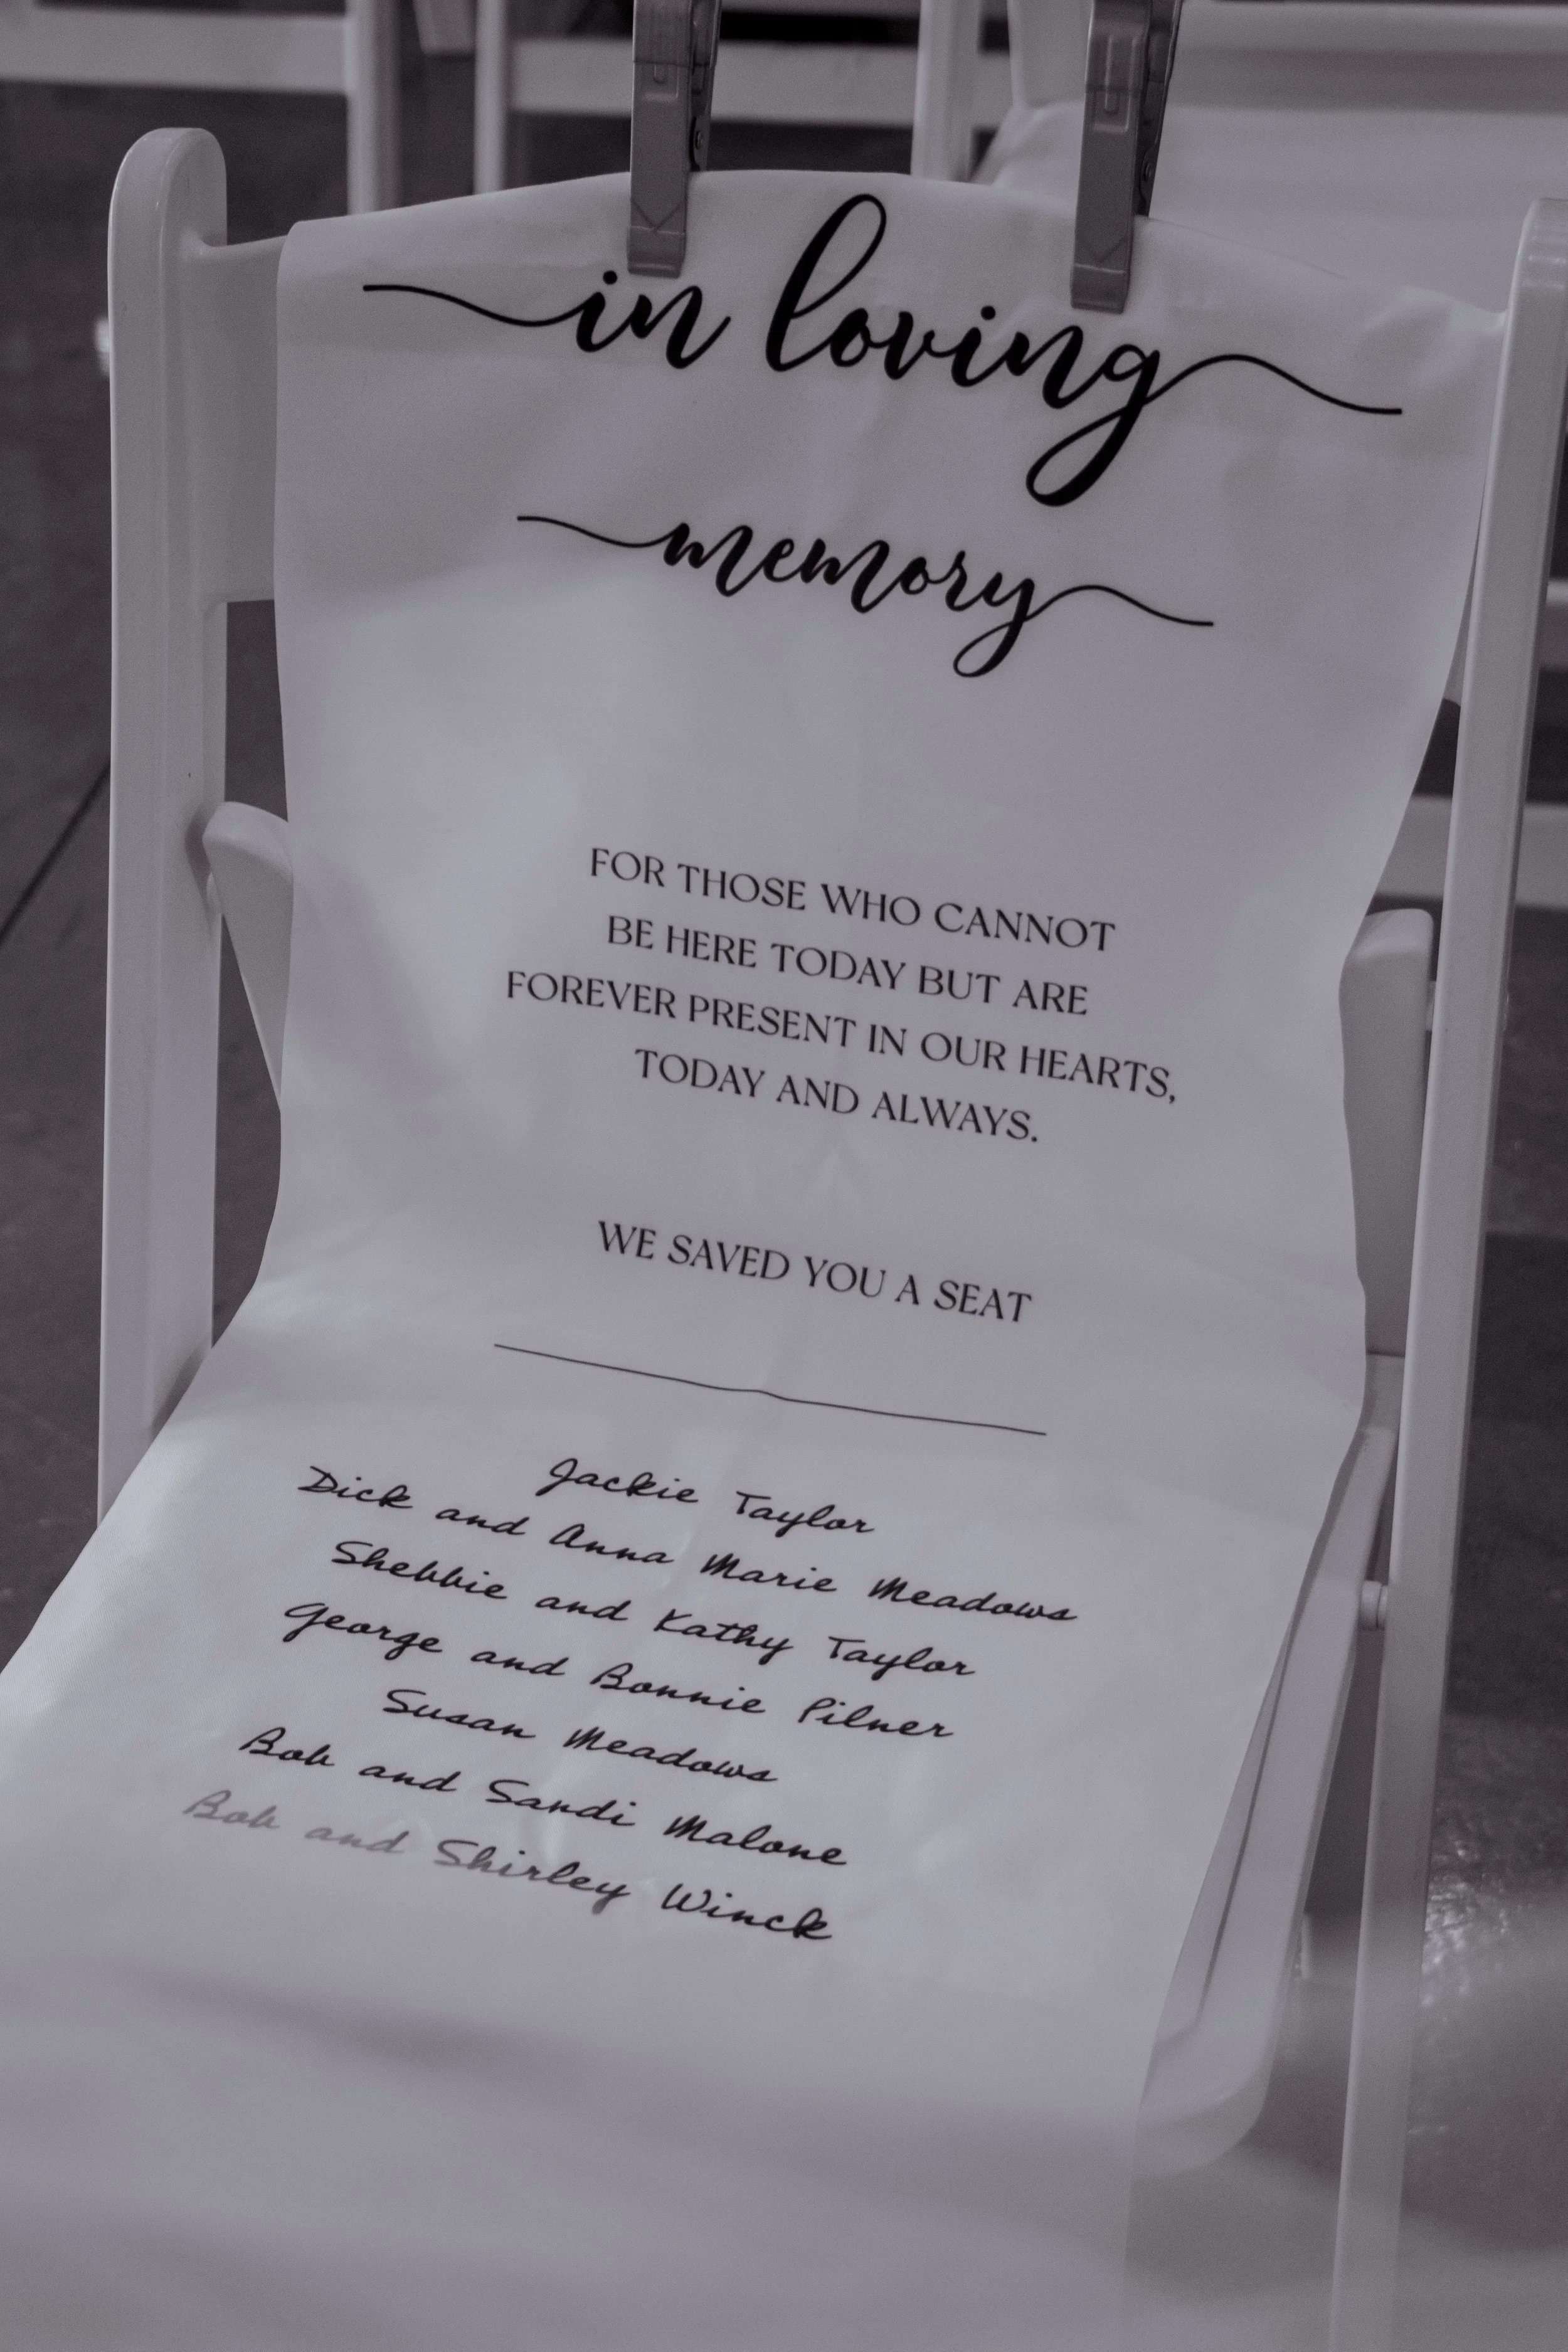 in loving
memory
FOR THOSE WHO CANNOT
BE HERE TODAY BUT ARE
FOREVER PRESENT IN OUR HEARTS,
TODAY AND ALWAYS.
WE SAVED YOU A SEAT
Jackie Taylor
Dick and Anna Marie Meadows
Shebbie and Kathy Taylor
George and Bonnie Pilner
Susan Meadows
Bob and Sandi Malone
Bob and Shirley Winck